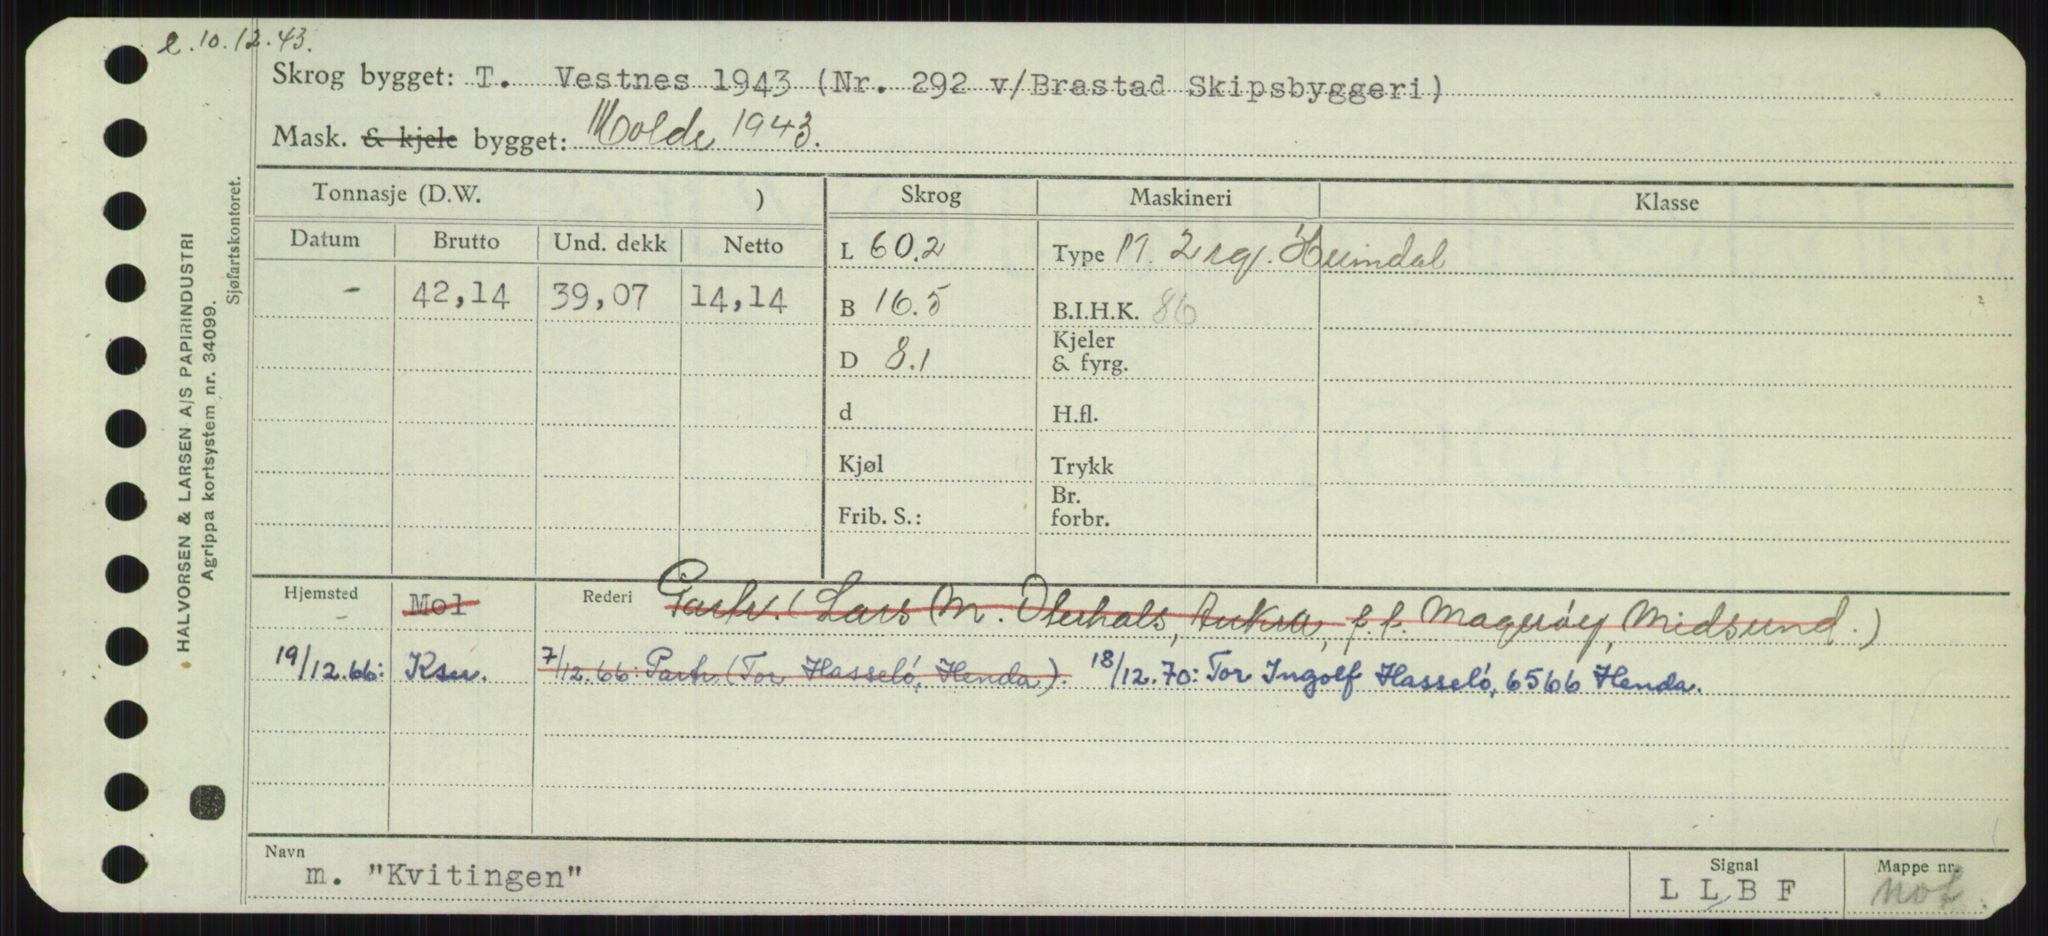 e. 10.12.43.
Skrog bygget: T. Vestnes 1943 (Nr. 292 v/Brastad Skipsbyggeri)
Mask. & kjele bygget: Molde 1943.
Tonnasje (D.W. ) Skrog Maskineri Klasse
Datum Brutto Und. dekk Netto
L 60.2 Type M. 2 Heimdal
- 42,14 39,07 14,14
B 16.5 B.I.H.K. 86
D 8.1 Kjeler & fyrg.
d H.fl.
Kjøl Trykk
Frib. S.: Br. forbr.
Hjemsted - Mol Rederi Partr. (Lars M. Oterhals, Aukra, f.f. Magerøy, Midsund.)
19/12.66: Ksu. 7/12.66: Partr (Tor Hasselö, Henda). 18/12.70: Tor Ingolf Hasselö, 6566 Henda.
Navn m. "Kvitingen" Signal L L B F Mappe nr. Mot.
HALVORSEN & LARSEN A/S PAPIRINDUSTRI
Agrippa kortsystem nr. 34099.
Sjøfartskontoret.